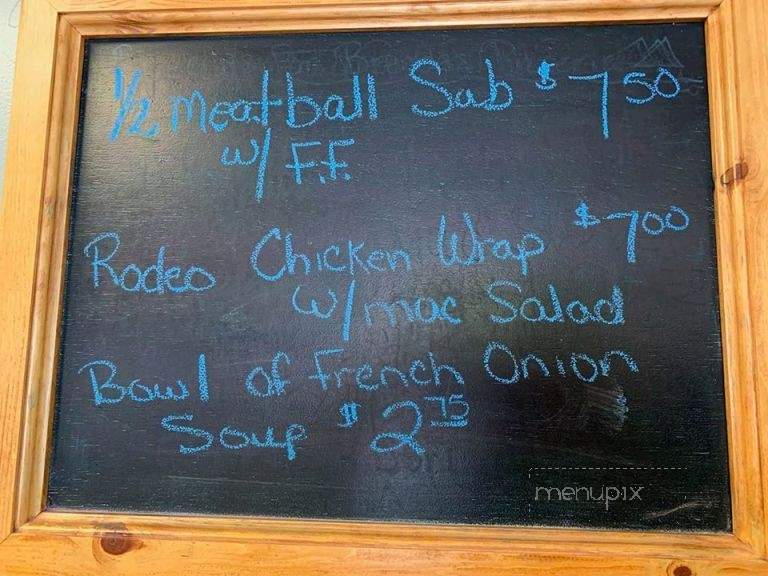 1/2 Meatball Sub $7.50
w/ F.F.
Rodeo Chicken Wrap $7.00
w/ mac Salad
Bowl of French Onion
Soup $2.75
menupix